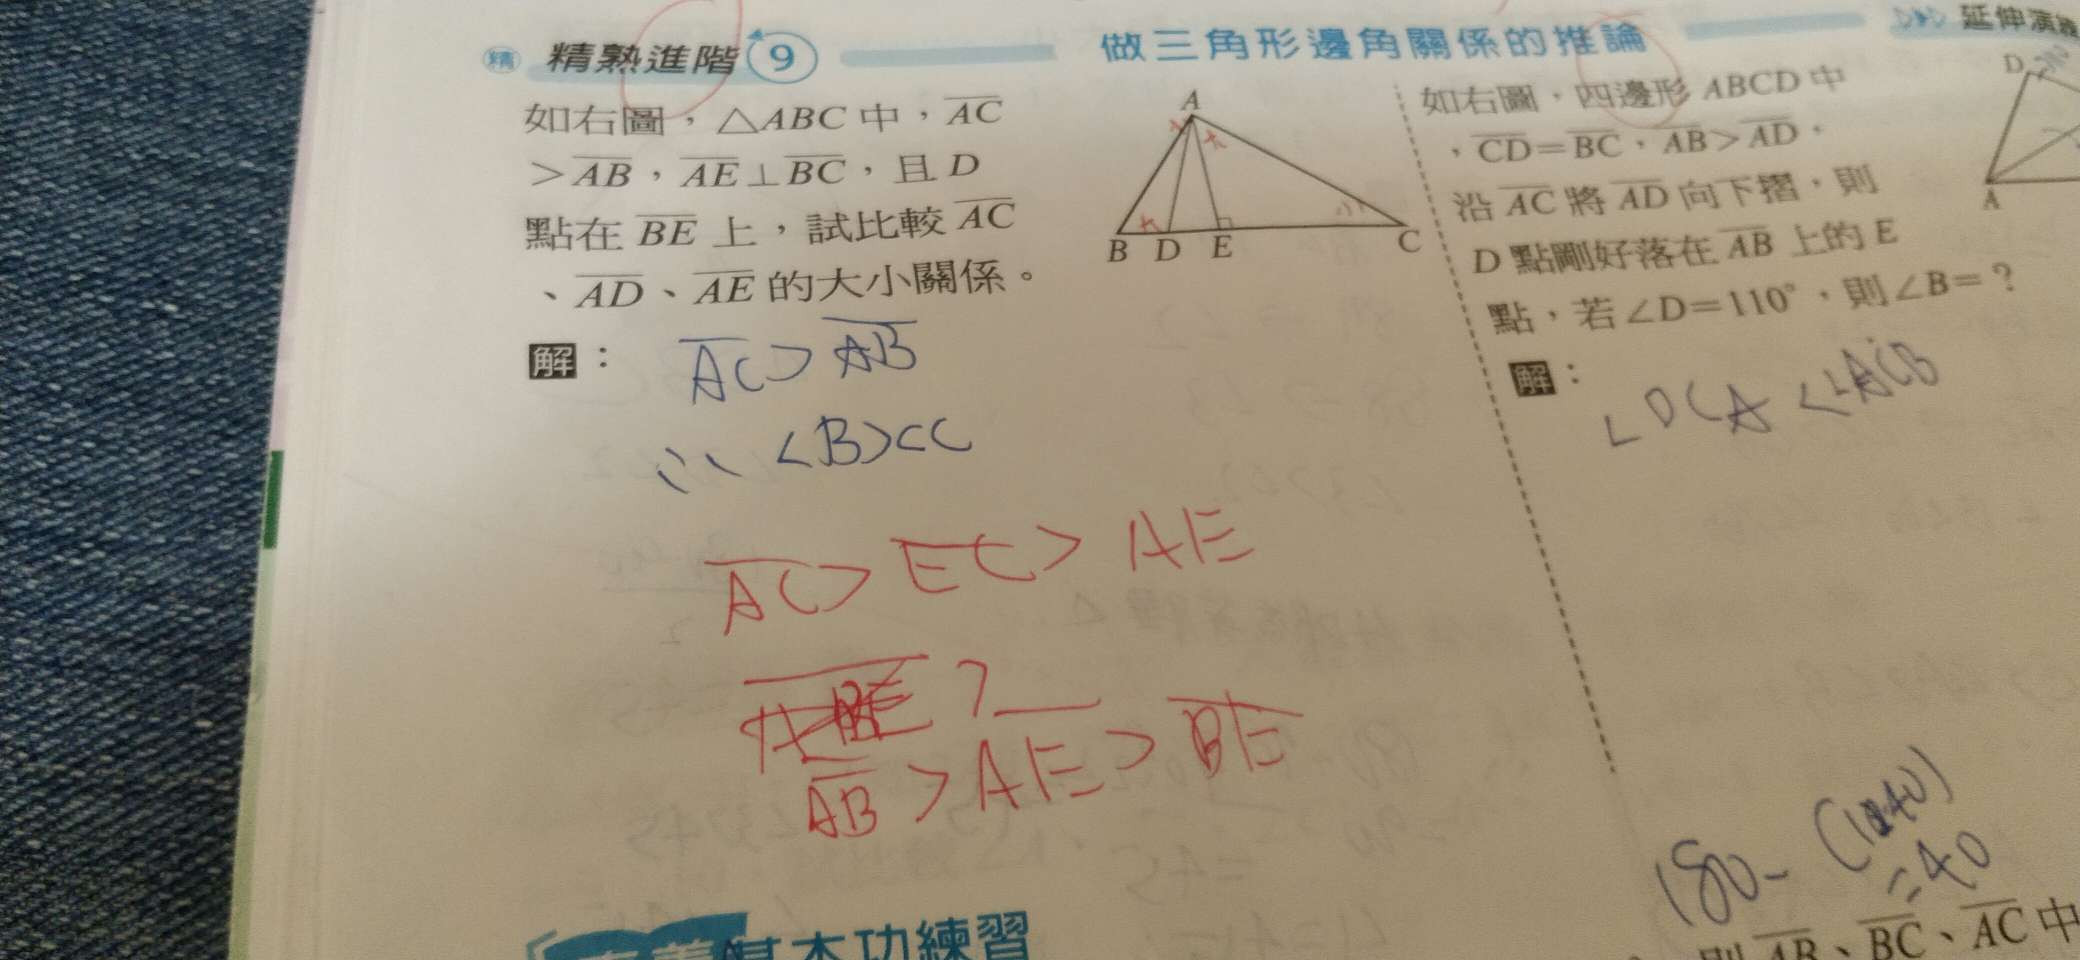 精 精熟進階 9 做三角形邊角關係的推論 延伸演
如右圖，△ABC 中，AC
>AB，AE⊥BC，且 D
點在 BE 上，試比較 AC
、AD、AE 的大小關係。
A
B D E C
解：
AC>AB
∴ <B><C
AC> EC> AE
AB >AE> BE
如右圖，四邊形 ABCD 中
，CD=BC，AB>AD，
沿 AC 將 AD 向下摺，則
D 點剛好落在 AB 上的 E
點，若∠D=110°，則∠B=？
D
A
解：
∠DCA <∠ACB
180-
=40
基本功練習
則 AB、BC、AC 中